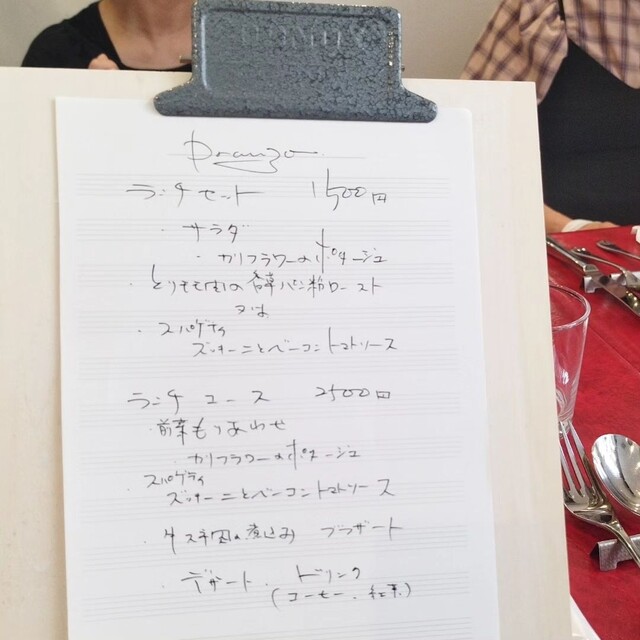 Pranzo
ランチセット 1500円
・サラダ
・カリフラワーのポタージュ
・とりもも肉の香草パン粉ロースト
又は
・スパゲティ
ズッキーニとベーコントマトソース
ランチコース 2500円
・前菜もりあわせ
・カリフラワーのポタージュ
スパゲティ
ズッキーニとベーコントマトソース
・牛スネ肉の煮込み ブラザート
・デザート・ドリンク
(コーヒー、紅茶)